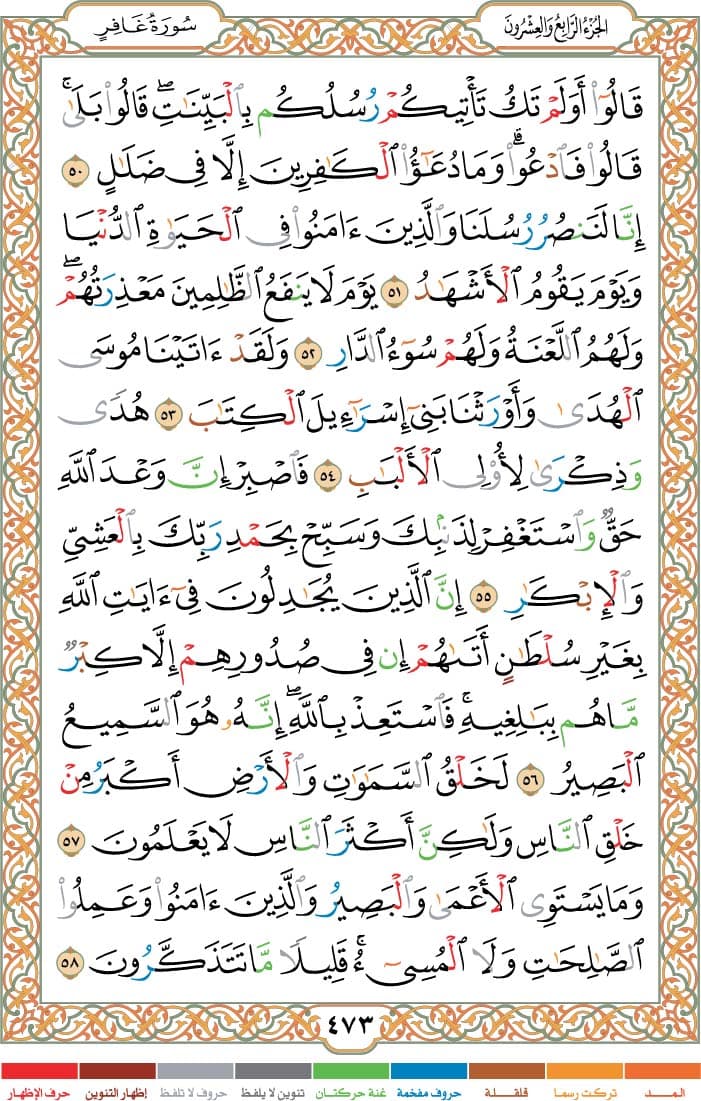 الجُزْءُ الرَّابِعُ وَالعِشْرُونَ
سُورَةُ غَافِرٍ
قَالُوٓا۟ أَوَلَمْ تَكُ تَأْتِيكُمْ رُسُلُكُم بِٱلْبَيِّنَٰتِ ۖ قَالُوا۟ بَلَىٰ ۚ
قَالُوا۟ فَٱدْعُوا۟ ۗ وَمَا دُعَٰٓؤُا۟ ٱلْكَٰفِرِينَ إِلَّا فِى ضَلَٰلٍ ٥٠
إِنَّا لَنَنصُرُ رُسُلَنَا وَٱلَّذِينَ ءَامَنُوا۟ فِى ٱلْحَيَوٰةِ ٱلدُّنْيَا
وَيَوْمَ يَقُومُ ٱلْأَشْهَٰدُ ٥١ يَوْمَ لَا يَنفَعُ ٱلظَّٰلِمِينَ مَعْذِرَتُهُمْ ۖ
وَلَهُمُ ٱللَّعْنَةُ وَلَهُمْ سُوٓءُ ٱلدَّارِ ٥٢ وَلَقَدْ ءَاتَيْنَا مُوسَى
ٱلْهُدَىٰ وَأَوْرَثْنَا بَنِىٓ إِسْرَٰٓءِيلَ ٱلْكِتَٰبَ ٥٣ هُدًى
وَذِكْرَىٰ لِأُو۟لِى ٱلْأَلْبَٰبِ ٥٤ فَٱصْبِرْ إِنَّ وَعْدَ ٱللَّهِ
حَقٌّ وَٱسْتَغْفِرْ لِذَنۢبِكَ وَسَبِّحْ بِحَمْدِ رَبِّكَ بِٱلْعَشِىِّ
وَٱلْإِبْكَٰرِ ٥٥ إِنَّ ٱلَّذِينَ يُجَٰدِلُونَ فِىٓ ءَايَٰتِ ٱللَّهِ
بِغَيْرِ سُلْطَٰنٍ أَتَىٰهُمْ ۙ إِن فِى صُدُورِهِمْ إِلَّا كِبْرٌ
مَّا هُم بِبَٰلِغِيهِ ۚ فَٱسْتَعِذْ بِٱللَّهِ ۖ إِنَّهُۥ هُوَ ٱلسَّمِيعُ
ٱلْبَصِيرُ ٥٦ لَخَلْقُ ٱلسَّمَٰوَٰتِ وَٱلْأَرْضِ أَكْبَرُ مِنْ
خَلْقِ ٱلنَّاسِ وَلَٰكِنَّ أَكْثَرَ ٱلنَّاسِ لَا يَعْلَمُونَ ٥٧
وَمَا يَسْتَوِى ٱلْأَعْمَىٰ وَٱلْبَصِيرُ وَٱلَّذِينَ ءَامَنُوا۟ وَعَمِلُوا۟
ٱلصَّٰلِحَٰتِ وَلَا ٱلْمُسِىٓءُ ۚ قَلِيلًا مَّا تَتَذَكَّرُونَ ٥٨
٤٧٣
المـــد تركت رسما قلقـلة حروف مفخمة غنة حركتـان تنوين لا يلفظ حروف لا تلفظ إظهار التنوين حرف الإظهار